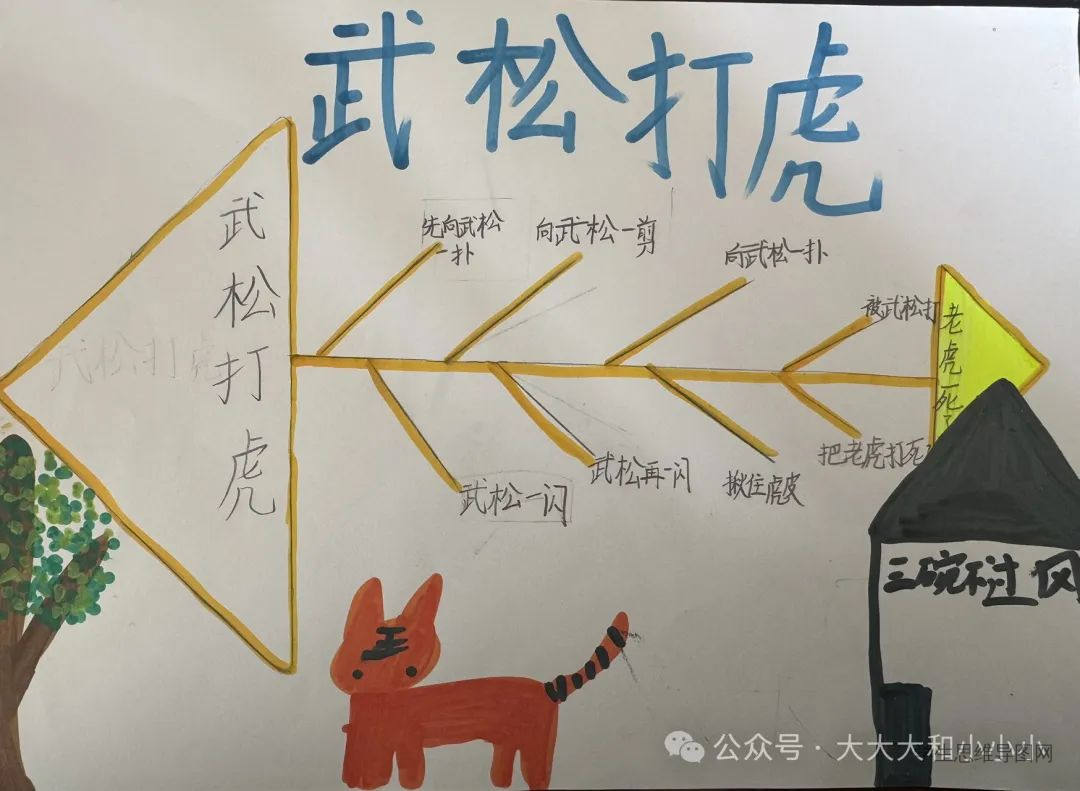 武松打虎
武松打虎
武松打虎
先向武松
一扑
向武松一剪
向武松一扑
被武松打
老虎死了
武松一闪
武松再一闪
揪住虎皮
把老虎打死
三碗不过冈
王
公众号 · 大大大和小小小
生思维导图网